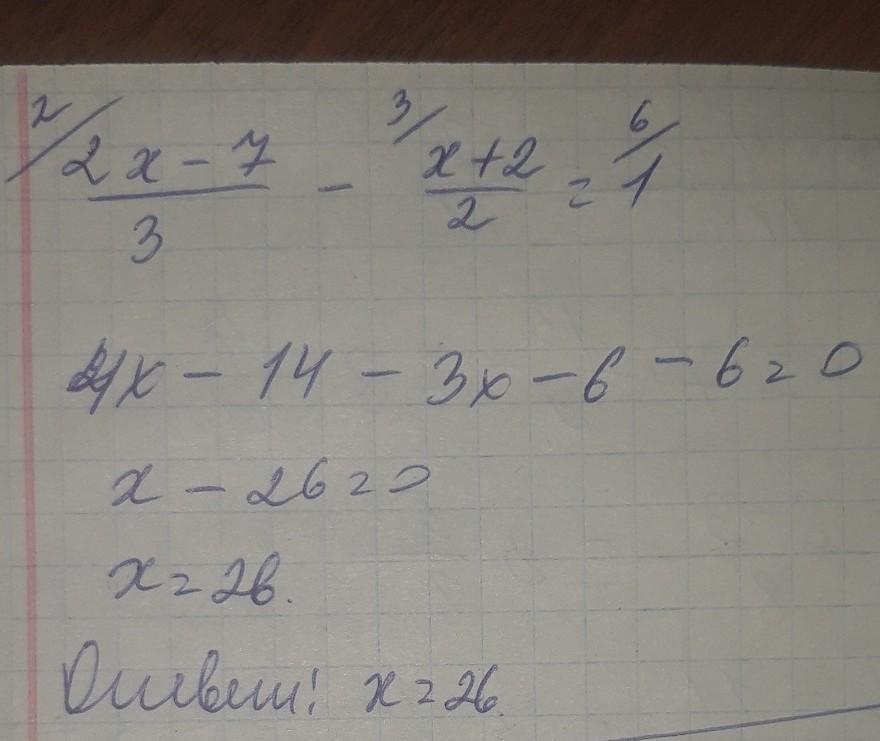 2/ 2x - 7 / 3 - 3/ x + 2 / 2 = 6/ 1
4x - 14 - 3x - 6 - 6 = 0
x - 26 = 0
x = 26.
Ответ: x = 26.